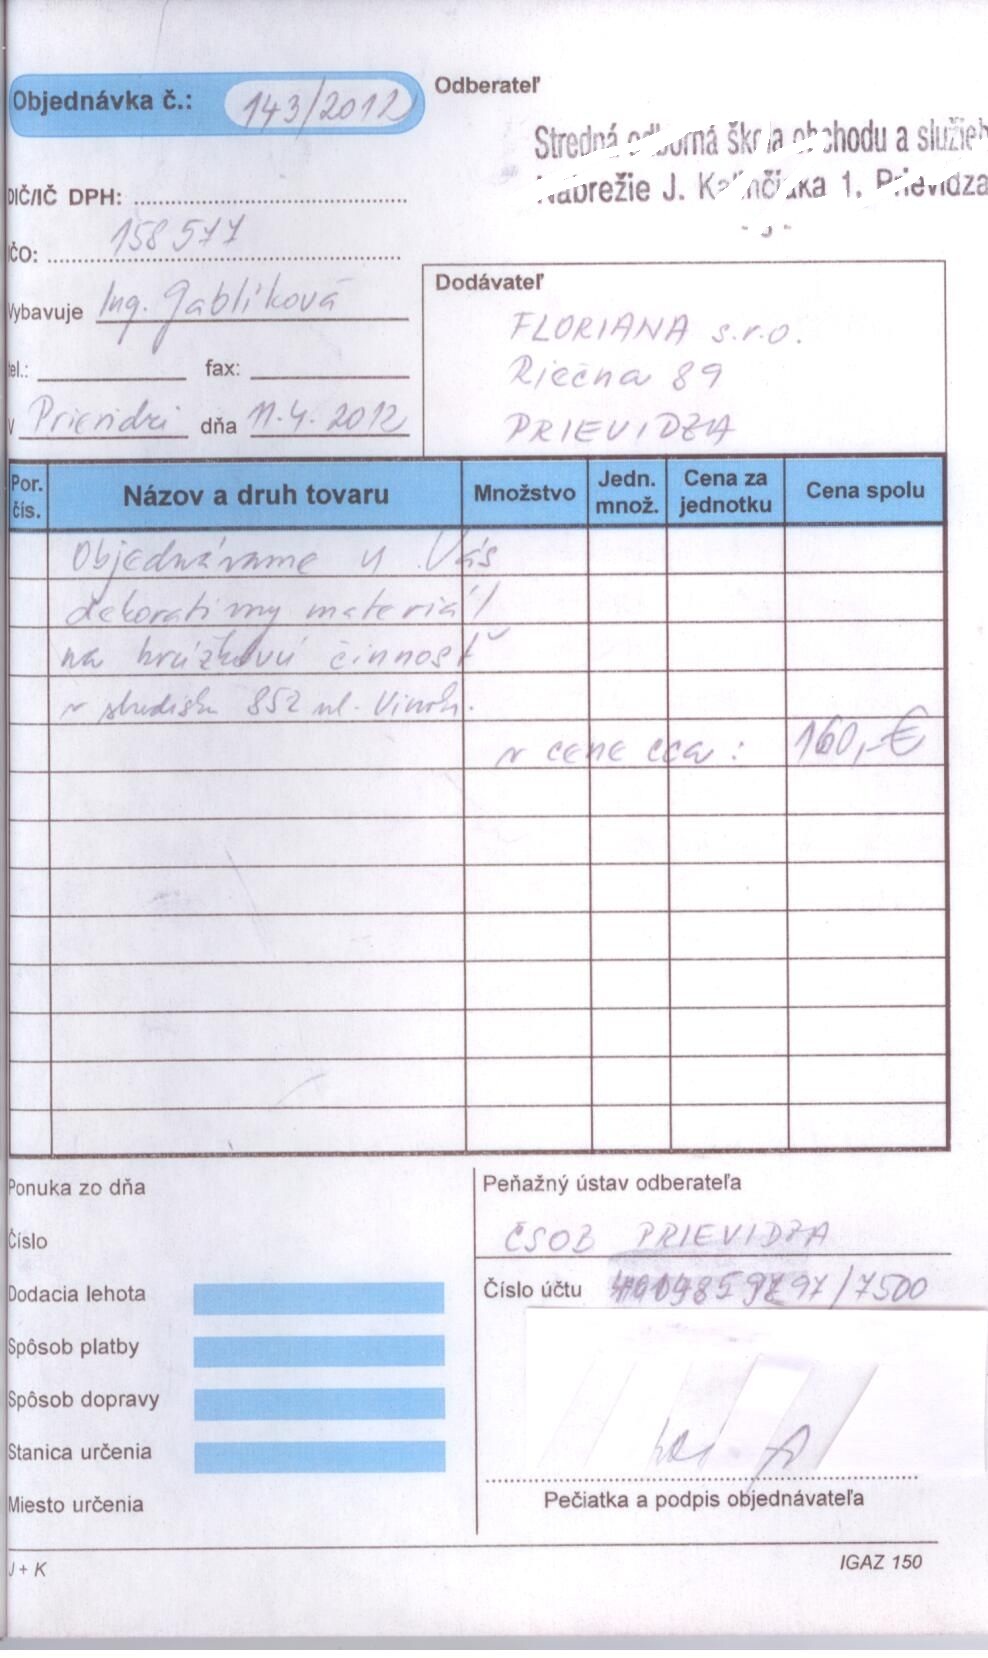 Objednávka č.: 143/2012
Odberateľ
Stredná odborná škola obchodu a služieb
Nábrežie J. Kalinčiaka 1, Prievidza
- J -
DIČ/IČ DPH:
IČO: 158577
Vybavuje Ing. Gablíková
tel.: fax:
V Prievidzi dňa 11.4.2012
Dodávateľ
FLORIANA s.r.o.
Riečna 89
PRIEVIDZA
Por. čís. Názov a druh tovaru Množstvo Jedn. množ. Cena za jednotku Cena spolu
Objednávame u Vás
dekoratívny materiál
na krúžkovú činnosť
v stredisku 852 ul. Vinoh.
v cene cca : 160,-€
Ponuka zo dňa
Číslo
Dodacia lehota
Spôsob platby
Spôsob dopravy
Stanica určenia
Miesto určenia
Peňažný ústav odberateľa
ČSOB PRIEVIDZA
Číslo účtu /7500
Pečiatka a podpis objednávateľa
J + K
IGAZ 150